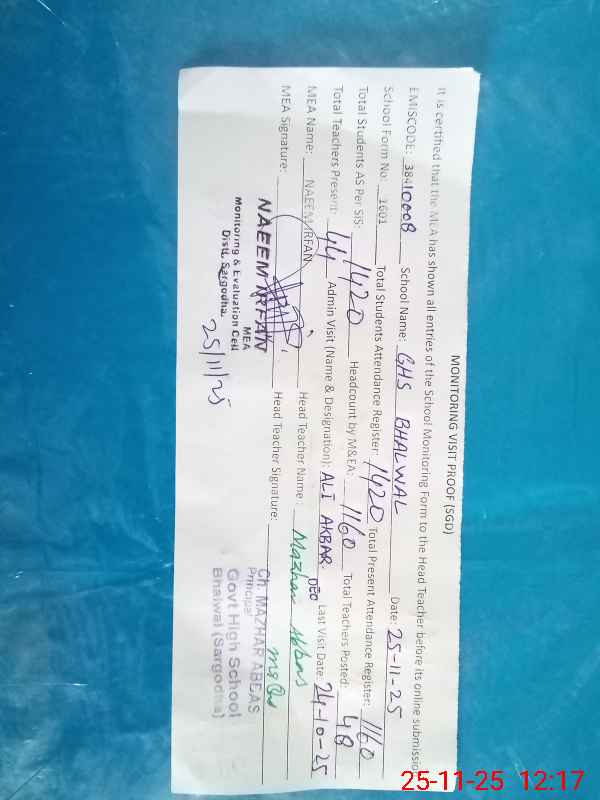 MONITORING VISIT PROOF (SGD)
It is certified that the MEA has shown all entries of the School Monitoring Form to the Head Teacher before its online submissio
EMISCODE: 38410008 School Name: GHS BHALWAL Date: 25-11-25
School Form No: 1601 Total Students Attendance Register: 1420 Total Present Attendance Register: 1160
Total Students AS Per SIS: 1420 Headcount by M&EA: 1160 Total Teachers Posted: 48
Total Teachers Present: 44 Admin Visit (Name & Designation): ALI AKBAR. DEO Last Visit Date: 24-10-25
MEA Name: NAEEM IRFAN Head Teacher Name: Mazhar Abbas
MEA Signature: Head Teacher Signature:
NAEEM IRFAN
MEA
Monitoring & Evaluation Cell
Distt. Sargodha.
25/11/25
Ch. MAZHAR ABBAS
Principal
Govt High School
Bhalwal (Sargodha)
25-11-25 12:17